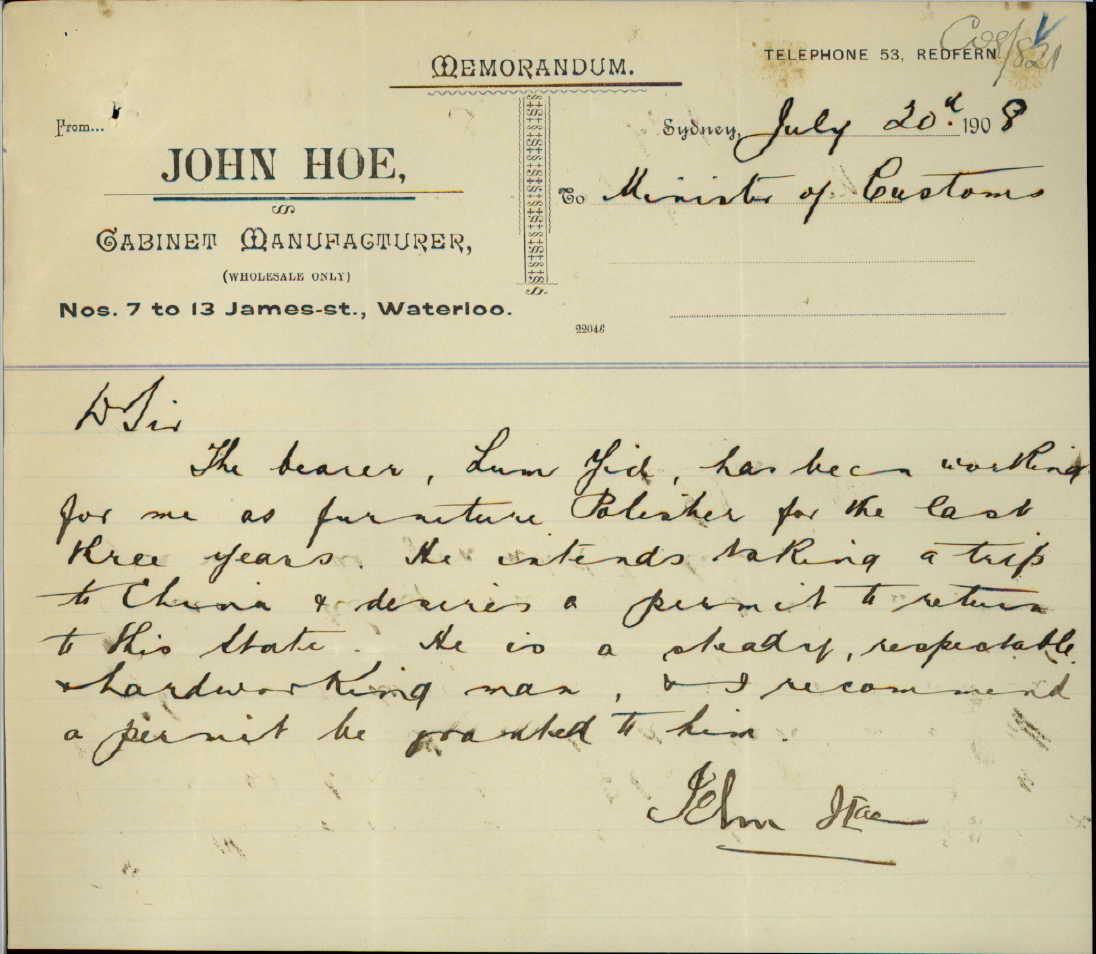 MEMORANDUM.
TELEPHONE 53, REDFERN.
From...
JOHN HOE,
CABINET MANUFACTURER,
(WHOLESALE ONLY)
Nos. 7 to 13 James-st., Waterloo.
Sydney, July 20.d 1908
To Minister of Customs
22046
D Sir
The bearer, Lum Yid, has been working
for me as furniture Polisher for the last
three years. He intends taking a trip
to China & desires a permit to return
to this State. He is a steady, respectable
& hardworking man, & I recommend
a permit be granted to him.
John Hoe